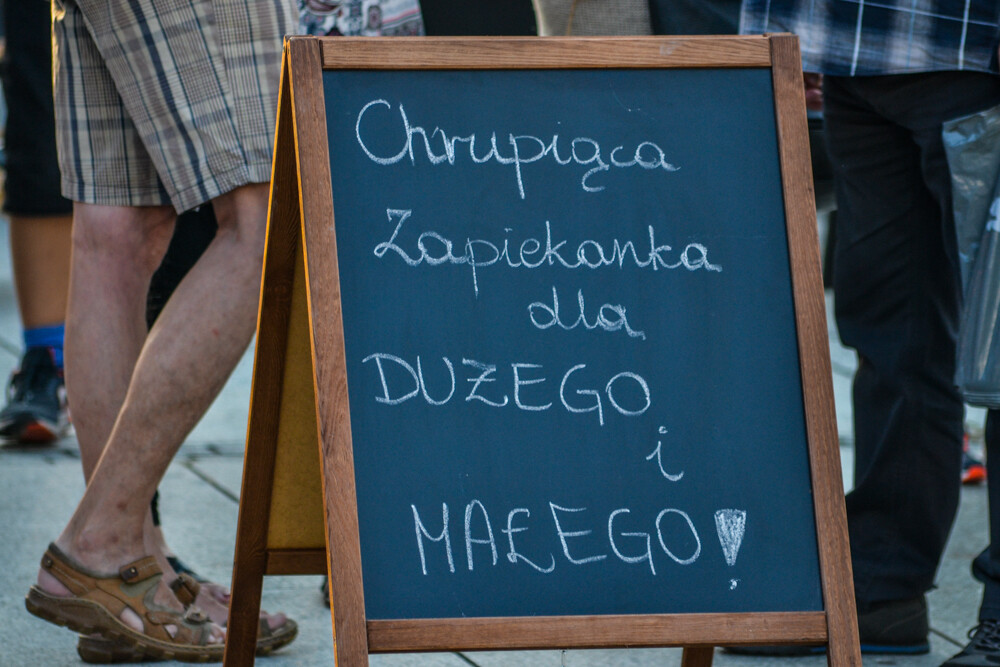 Chrupiąca
Zapiekanka
dla
DUŻEGO
i
MAŁEGO!